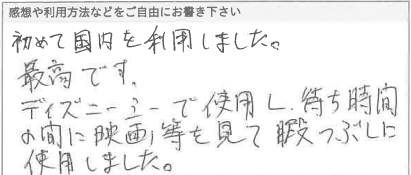 感想や利用方法などをご自由にお書き下さい
初めて国内を利用しました。
最高です。
ディズニーシーで使用し、待ち時間
の間に映画等を見て暇つぶしに
使用しました。